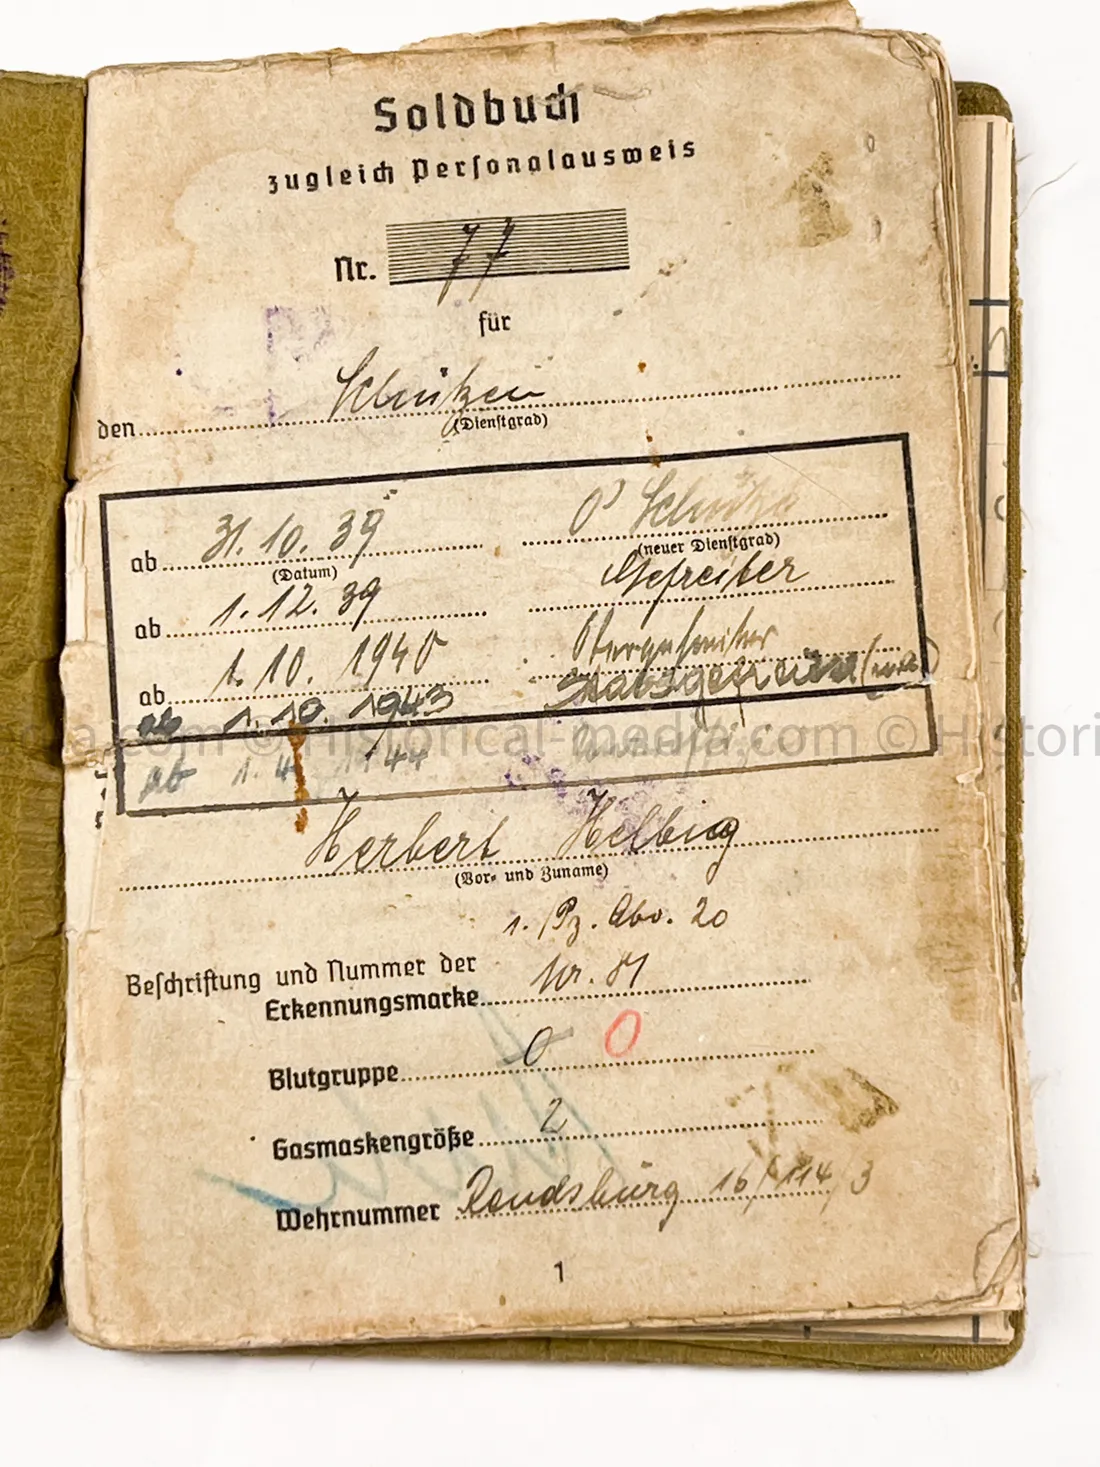 Soldbuch
zugleich Personalausweis
Nr. 77
für
den Schützen
(Dienstgrad)
ab 31. 10. 39 O' Schütze
(Datum) (neuer Dienstgrad)
ab 1. 12. 39 Gefreiter
ab 1. 10. 1940 Obergefreiter
ab 1. 10. 1943 Stabsgefreiter
ab 1. 4. 1944
.com © Historical-media.com © Histori
Herbert Helbig
(Vor- und Zuname)
1. Pz. Abw. 20
Beschriftung und Nummer der
Erkennungsmarke Nr. 81
Blutgruppe O O
Gasmaskengröße 2
Wehrnummer Rendsburg 16/114/3
1